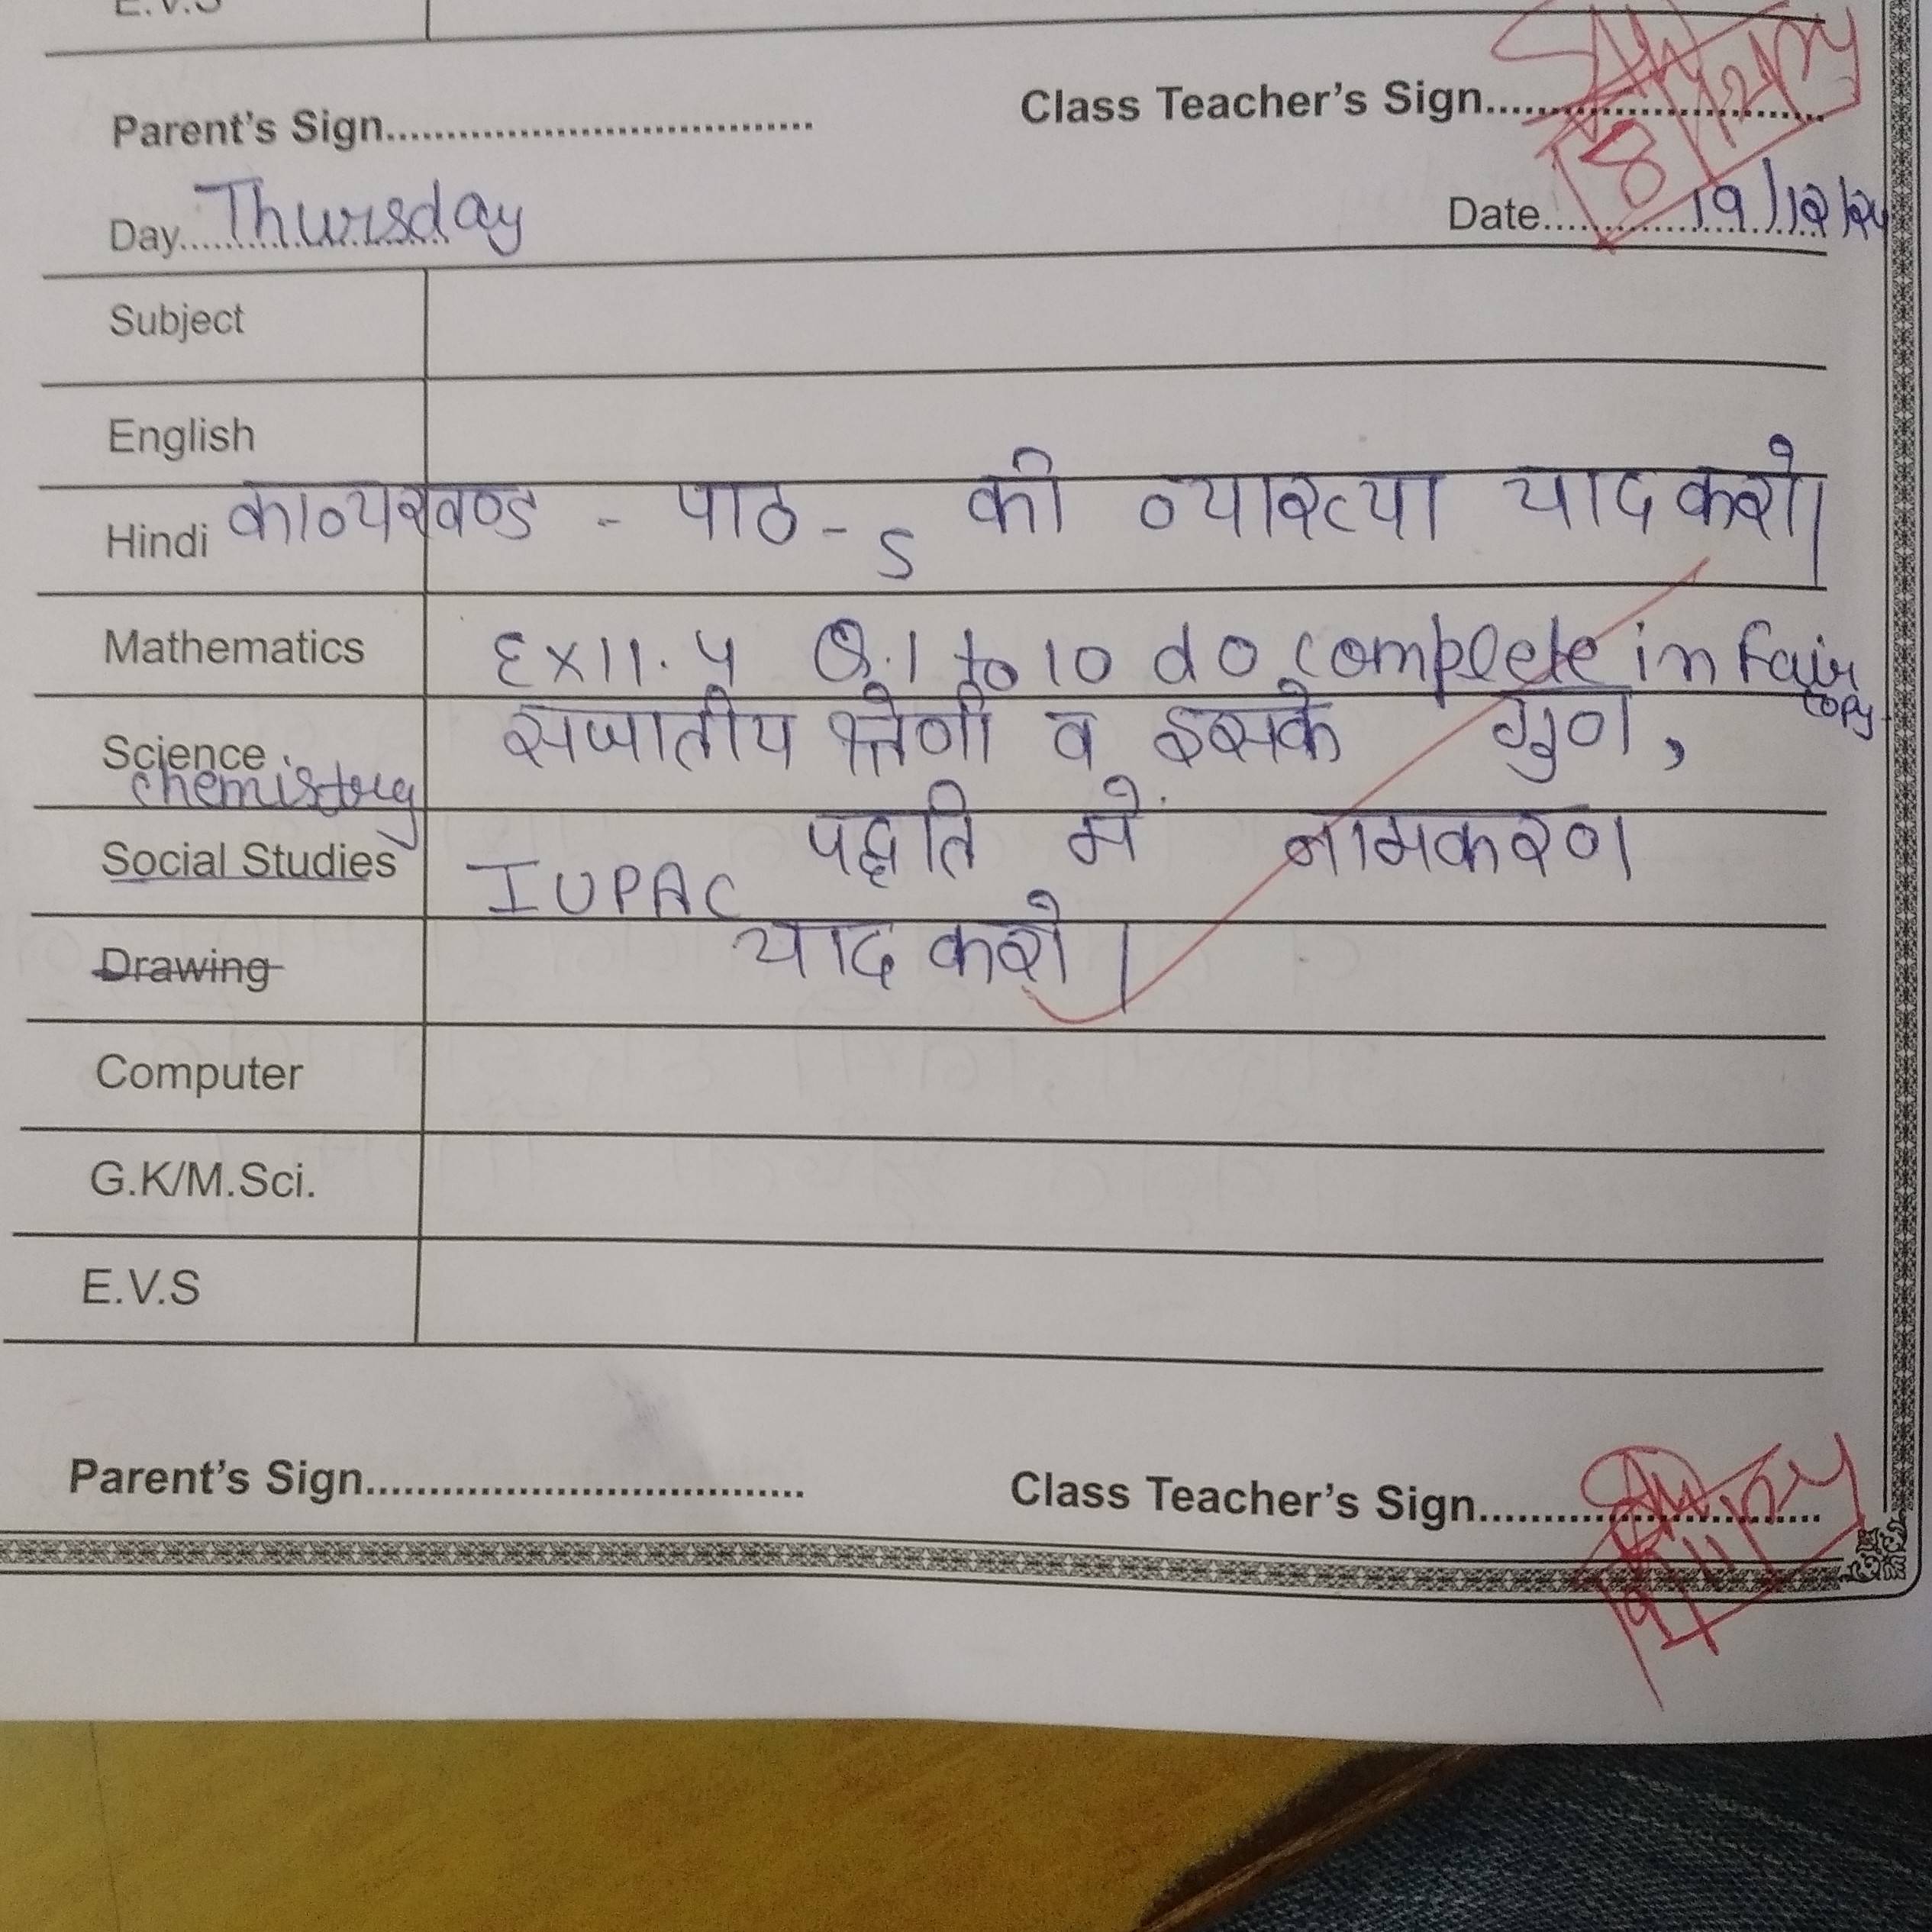 E.V.S
Parent's Sign.................................. Class Teacher's Sign..........................
Day Thursday Date 19/12/24
Subject
English
Hindi काव्यखण्ड - पाठ - 5 की व्याख्या याद करो।
Mathematics Ex 11.4 Q.1 to 10 do complete in fair copy
Science सजातीय श्रेणी व इसके गुण,
chemistry
Social Studies IUPAC पद्धति में नामकरण
Drawing याद करो।
Computer
G.K/M.Sci.
E.V.S
Parent's Sign.................................. Class Teacher's Sign..........................